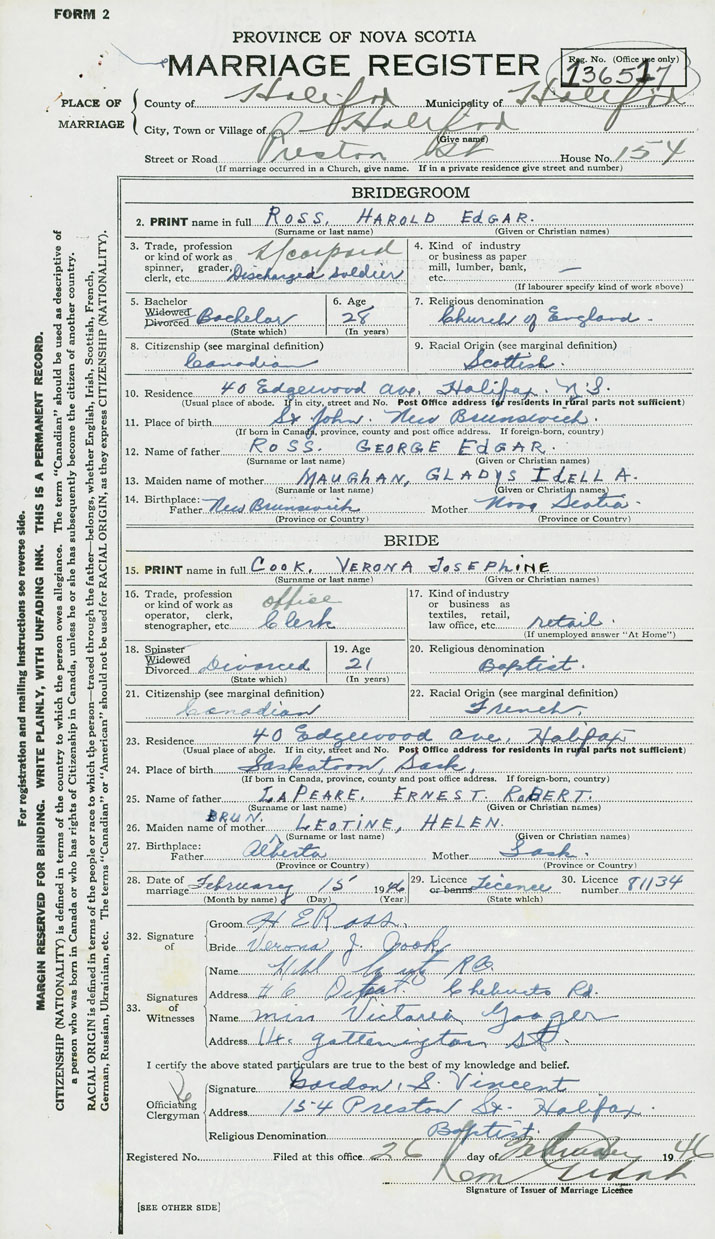 FORM 2
PROVINCE OF NOVA SCOTIA
MARRIAGE REGISTER
Reg. No. (Office use only)
136517
PLACE OF MARRIAGE
County of Halifax Municipality of Halifax
City, Town or Village of Halifax
(Give name)
Street or Road Preston St House No. 154
(If marriage occurred in a Church, give name. If in a private residence give street and number)
BRIDEGROOM
2. PRINT name in full ROSS, HAROLD EDGAR.
(Surname or last name) (Given or Christian names)
3. Trade, profession or kind of work as spinner, grader, clerk, etc. Discharged soldier
4. Kind of industry or business as paper mill, lumber, bank, etc. —
(If labourer specify kind of work above)
5. Bachelor Widowed Divorced Bachelor
(State which)
6. Age 28
(In years)
7. Religious denomination
Church of England.
8. Citizenship (see marginal definition)
Canadian
9. Racial Origin (see marginal definition)
Scottish.
10. Residence 40 Edgewood Ave, Halifax N.S.
(Usual place of abode. If in city, street and No. Post Office address for residents in rural parts not sufficient)
11. Place of birth St John. New Brunswick.
(If born in Canada, province, county and post office address. If foreign-born, country)
12. Name of father ROSS. GEORGE EDGAR.
(Surname or last name) (Given or Christian names)
13. Maiden name of mother MAUGHAN, GLADYS IDELLA.
(Surname or last name) (Given or Christian names)
14. Birthplace:
Father New Brunswick Mother Nova Scotia.
(Province or Country) (Province or Country)
BRIDE
15. PRINT name in full COOK, VERONA JOSEPHINE
(Surname or last name) (Given or Christian names)
16. Trade, profession or kind of work as operator, clerk, stenographer, etc. office Clerk
17. Kind of industry or business as textiles, retail, law office, etc. retail.
(If unemployed answer "At Home")
18. Spinster Widowed Divorced Divorced
(State which)
19. Age 21
(In years)
20. Religious denomination
Baptist.
21. Citizenship (see marginal definition)
Canadian
22. Racial Origin (see marginal definition)
French,
23. Residence 40 Edgewood Ave, Halifax
(Usual place of abode. If in city, street and No. Post Office address for residents in rural parts not sufficient)
24. Place of birth Saskatoon, Sask,
(If born in Canada, province, county and post office address. If foreign-born, country)
25. Name of father LAPEARE. ERNEST. ROBERT.
(Surname or last name) (Given or Christian names)
26. Maiden name of mother BRUN. LEOTINE, HELEN.
(Surname or last name) (Given or Christian names)
27. Birthplace:
Father Alberta Mother Sask.
(Province or Country) (Province or Country)
28. Date of marriage February 15 1946
(Month by name) (Day) (Year)
29. Licence or banns Licence
(State which)
30. Licence number 81134
32. Signature of
Groom H E Ross.
Bride Verona J. Cook
33. Signatures of Witnesses
Name
Address # 6 Depot Chebucto Rd.
Name Miss Victoria
Address St.
I certify the above stated particulars are true to the best of my knowledge and belief.
Officiating Clergyman
Signature Gordon S. Vincent
Address 154 Preston St. Halifax.
Religious Denomination Baptist.
Registered No. Filed at this office 26 day of February 1946
Signature of Issuer of Marriage Licence
[SEE OTHER SIDE]
For registration and mailing instructions see reverse side.
MARGIN RESERVED FOR BINDING. WRITE PLAINLY, WITH UNFADING INK. THIS IS A PERMANENT RECORD.
CITIZENSHIP (NATIONALITY) is defined in terms of the country to which the person owes allegiance. The term "Canadian" should be used as descriptive of
a person who was born in Canada or who has rights of Citizenship in Canada, unless he or she has subsequently become the citizen of another country.
RACIAL ORIGIN is defined in terms of the people or race to which the person—traced through the father—belongs, whether English, Irish, Scottish, French,
German, Russian, Ukrainian, etc. The terms "Canadian" or "American" should not be used for RACIAL ORIGIN, as they express CITIZENSHIP (NATIONALITY).